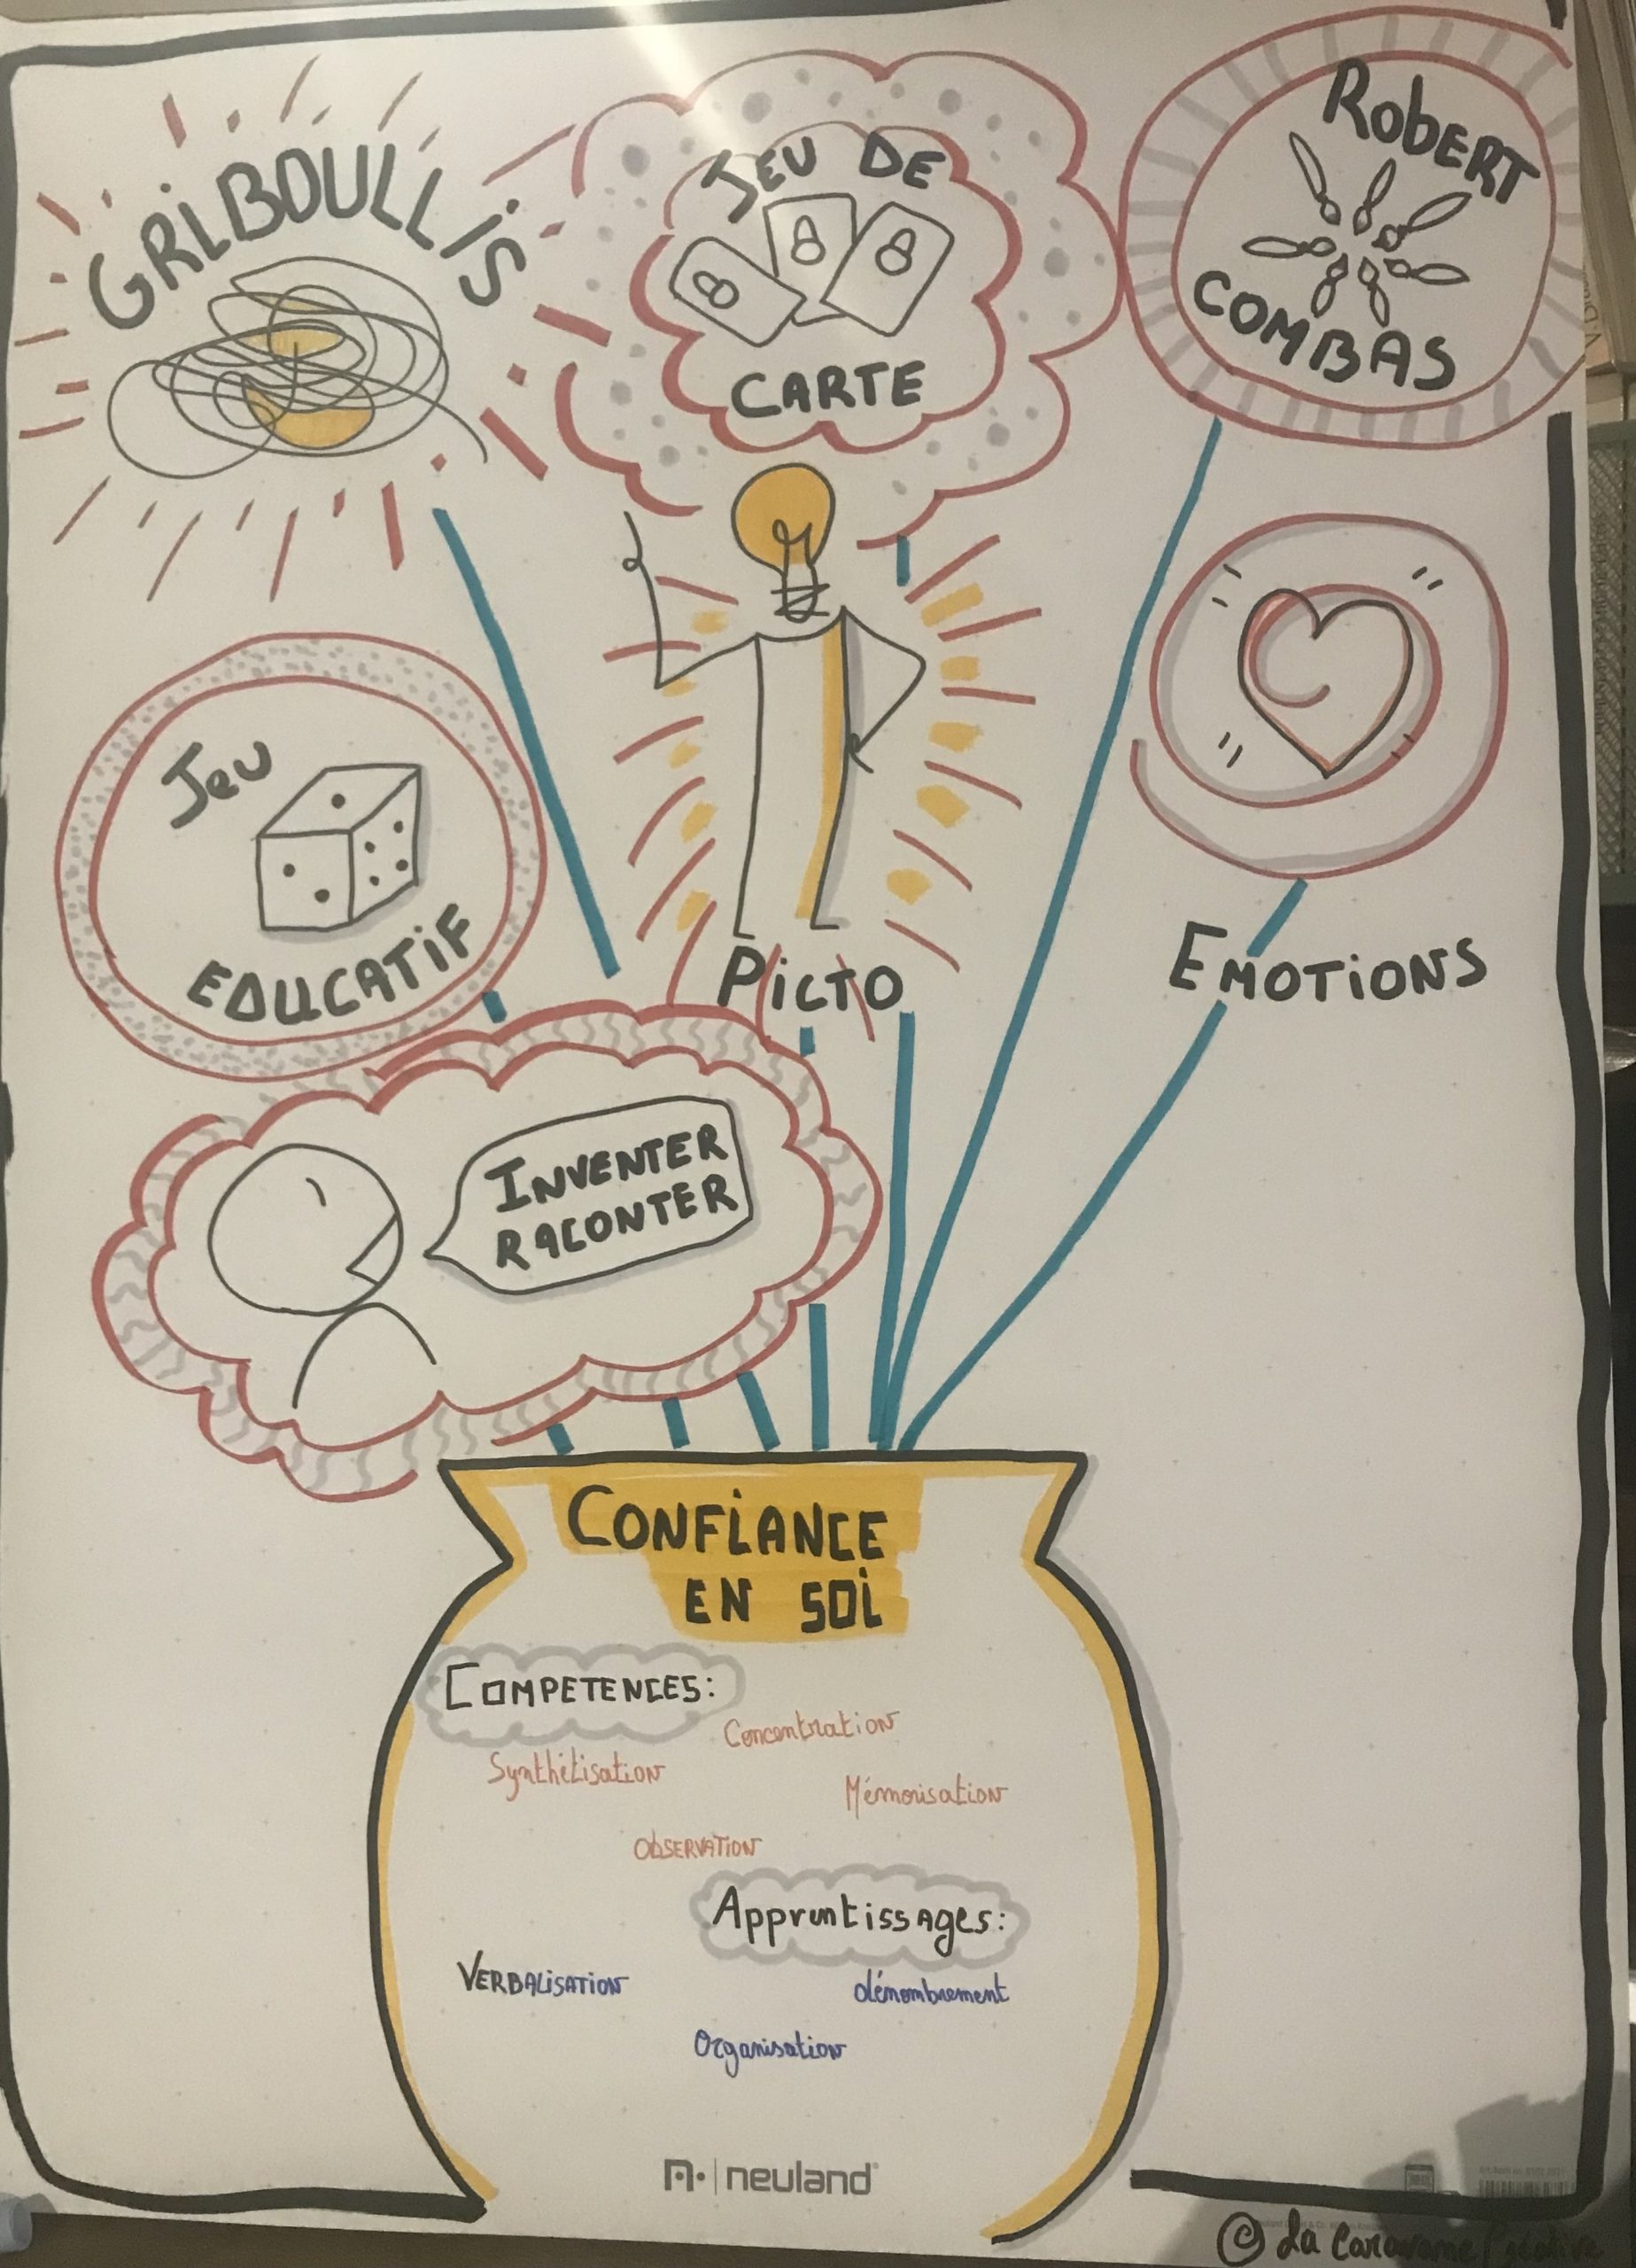 GRIBOULLIS
JEU DE
CARTE
ROBERT
COMBAS
Jeu
EDUCATIF
PICTO
EMOTIONS
INVENTER
RACONTER
CONFIANCE
EN SOI
COMPETENCES:
Concentration
Synthétisation
Mémorisation
OBSERVATION
Apprentissages:
VERBALISATION
dénombrement
Organisation
neuland
© La Caravane Créative